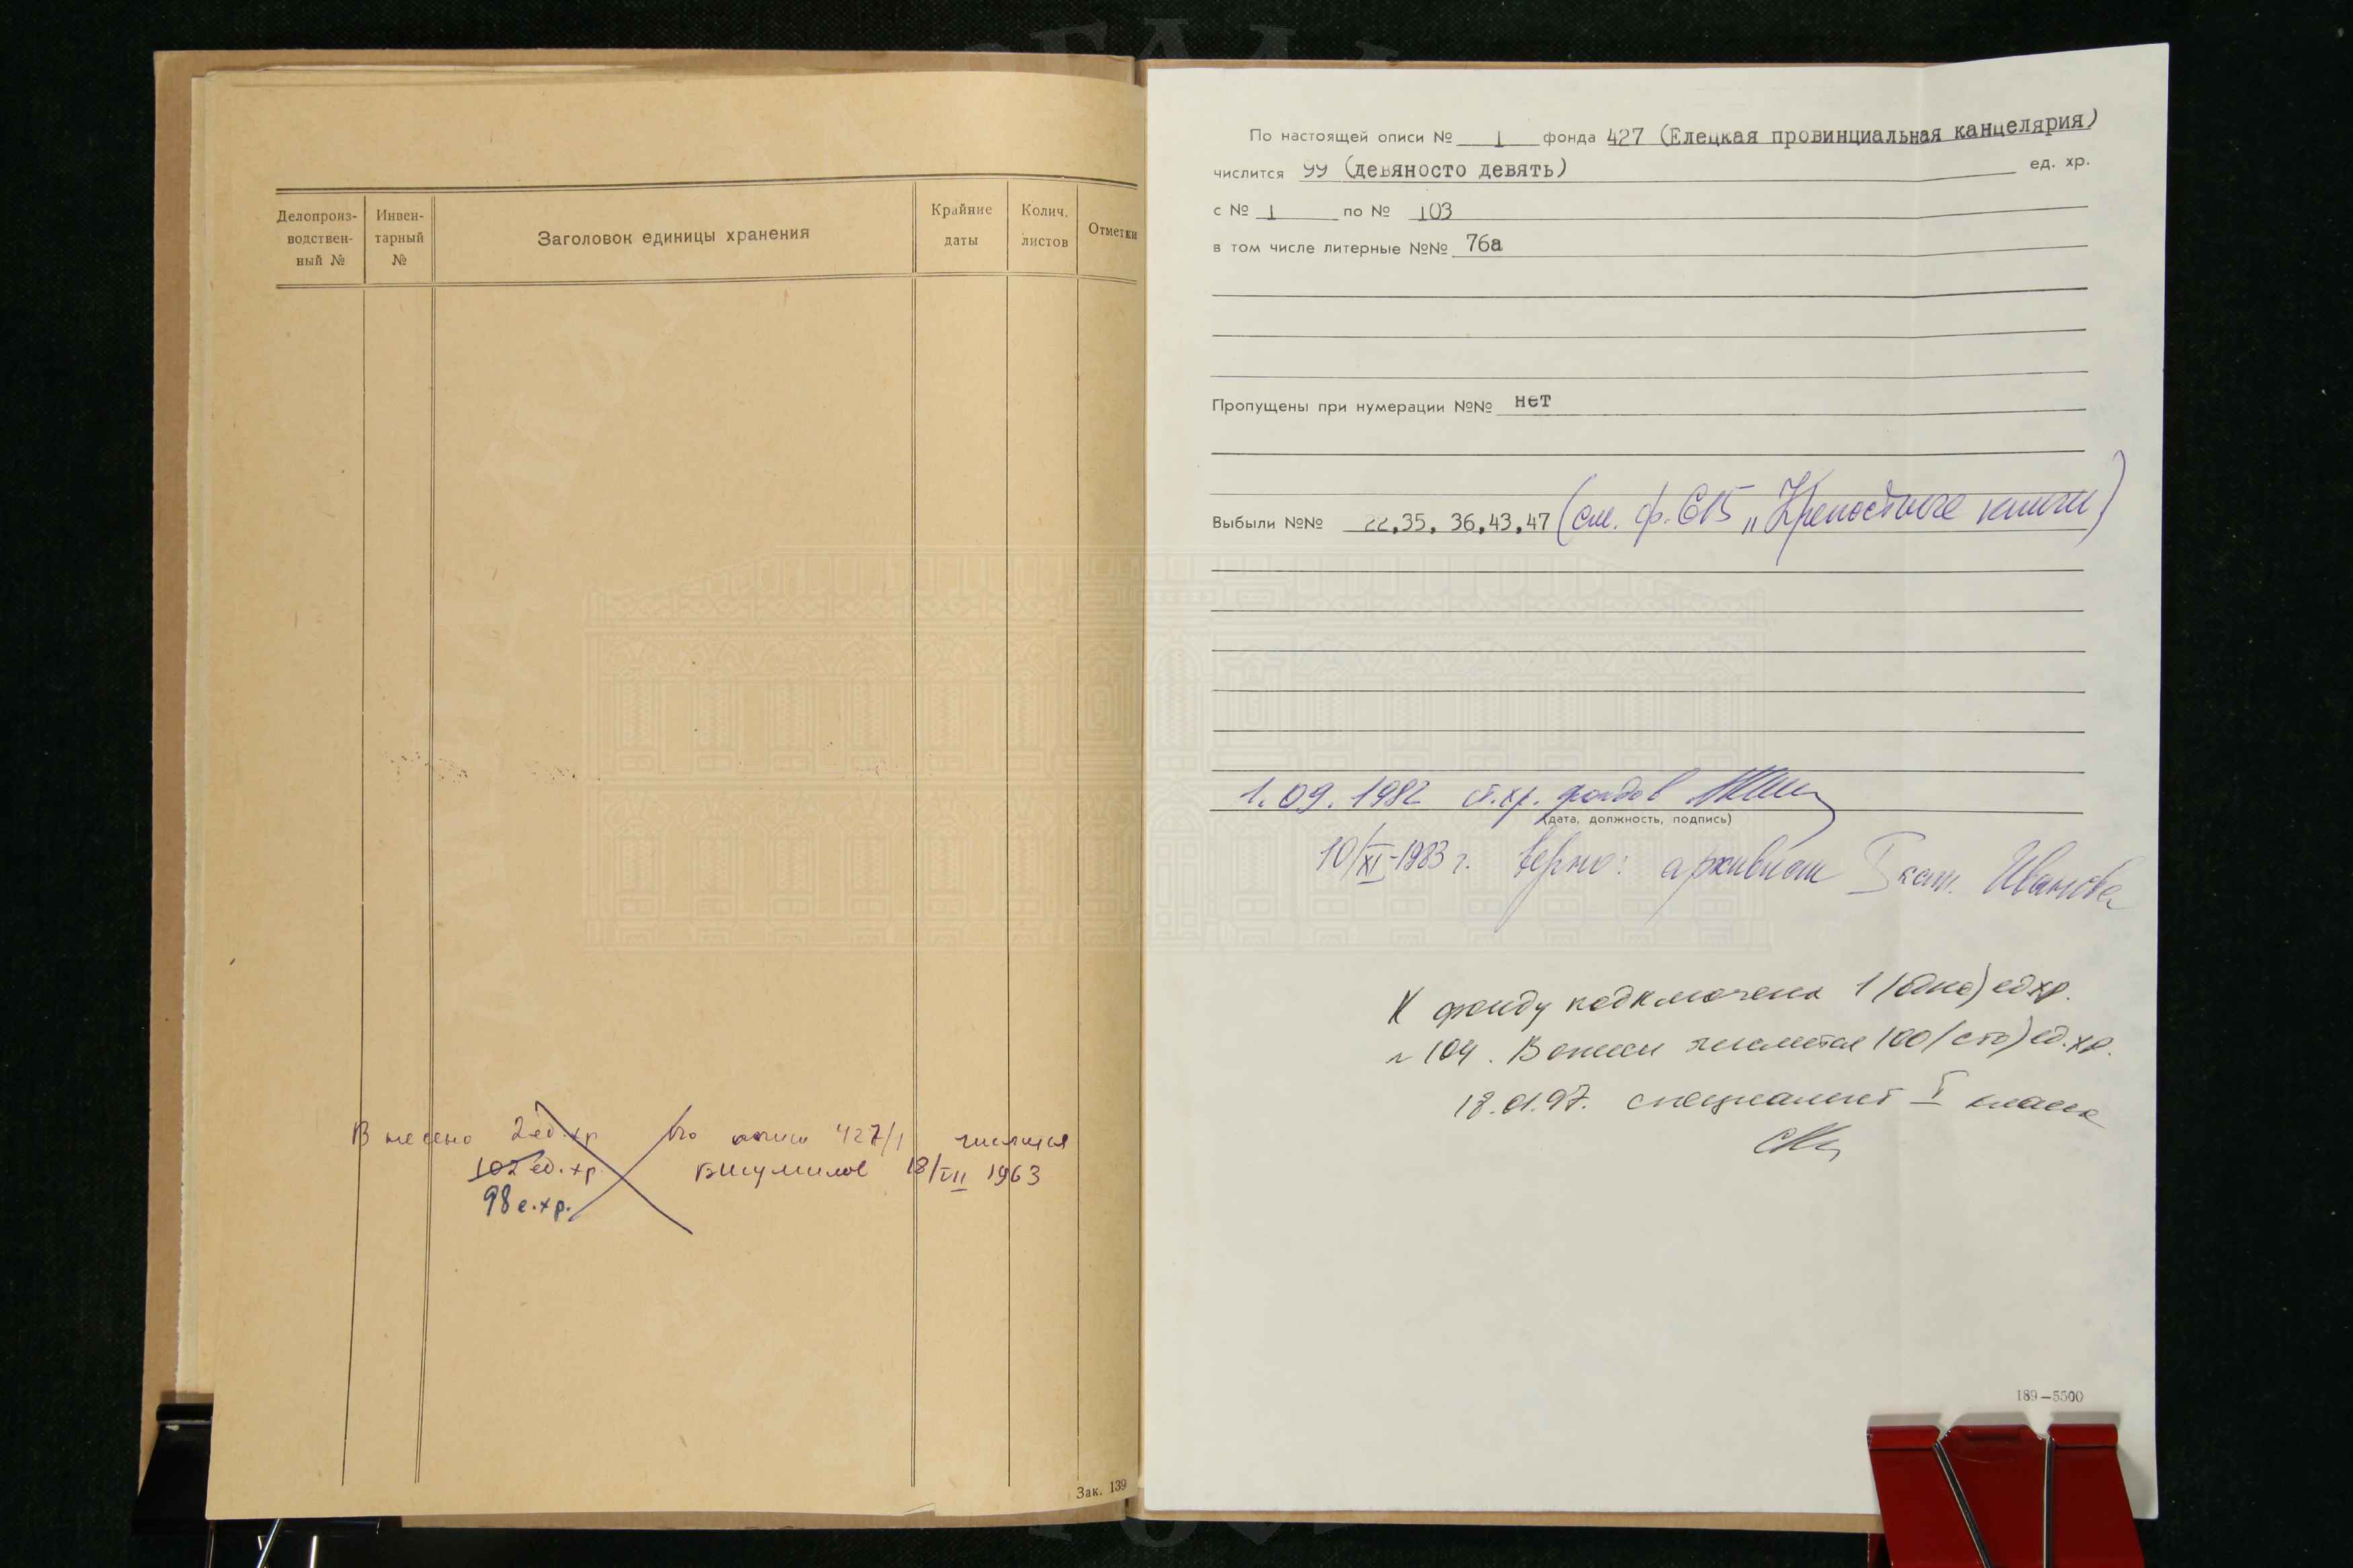 Делопроиз-
водствен-
ный №
Инвен-
тарный
№
Заголовок единицы хранения
Крайние
даты
Колич.
листов
Отметки
Внесено 2 ед. хр По описи 427/1 числится
102 ед. хр. 18/VII 1963
98 е.хр.
Зак. 139
По настоящей описи № 1 фонда 427 (Елецкая провинциальная канцелярия)
числится 99 (девяносто девять) ед. хр.
с № 1 по № 103
в том числе литерные №№ 76а
Пропущены при нумерации №№ нет
Выбыли №№ 22,35, 36,43,47 (см. ф. 615 „Крепостные книги)
1.09.1982 ст.хр. фондов
(дата, должность, подпись)
10/XI-1983 г. Верно: архивист I кат. Иванова
К фонду подключена 1 (одна) ед хр.
№ 104. В описи числится 100 (сто) ед. хр.
18.01.97. специалист I класса
189—5500